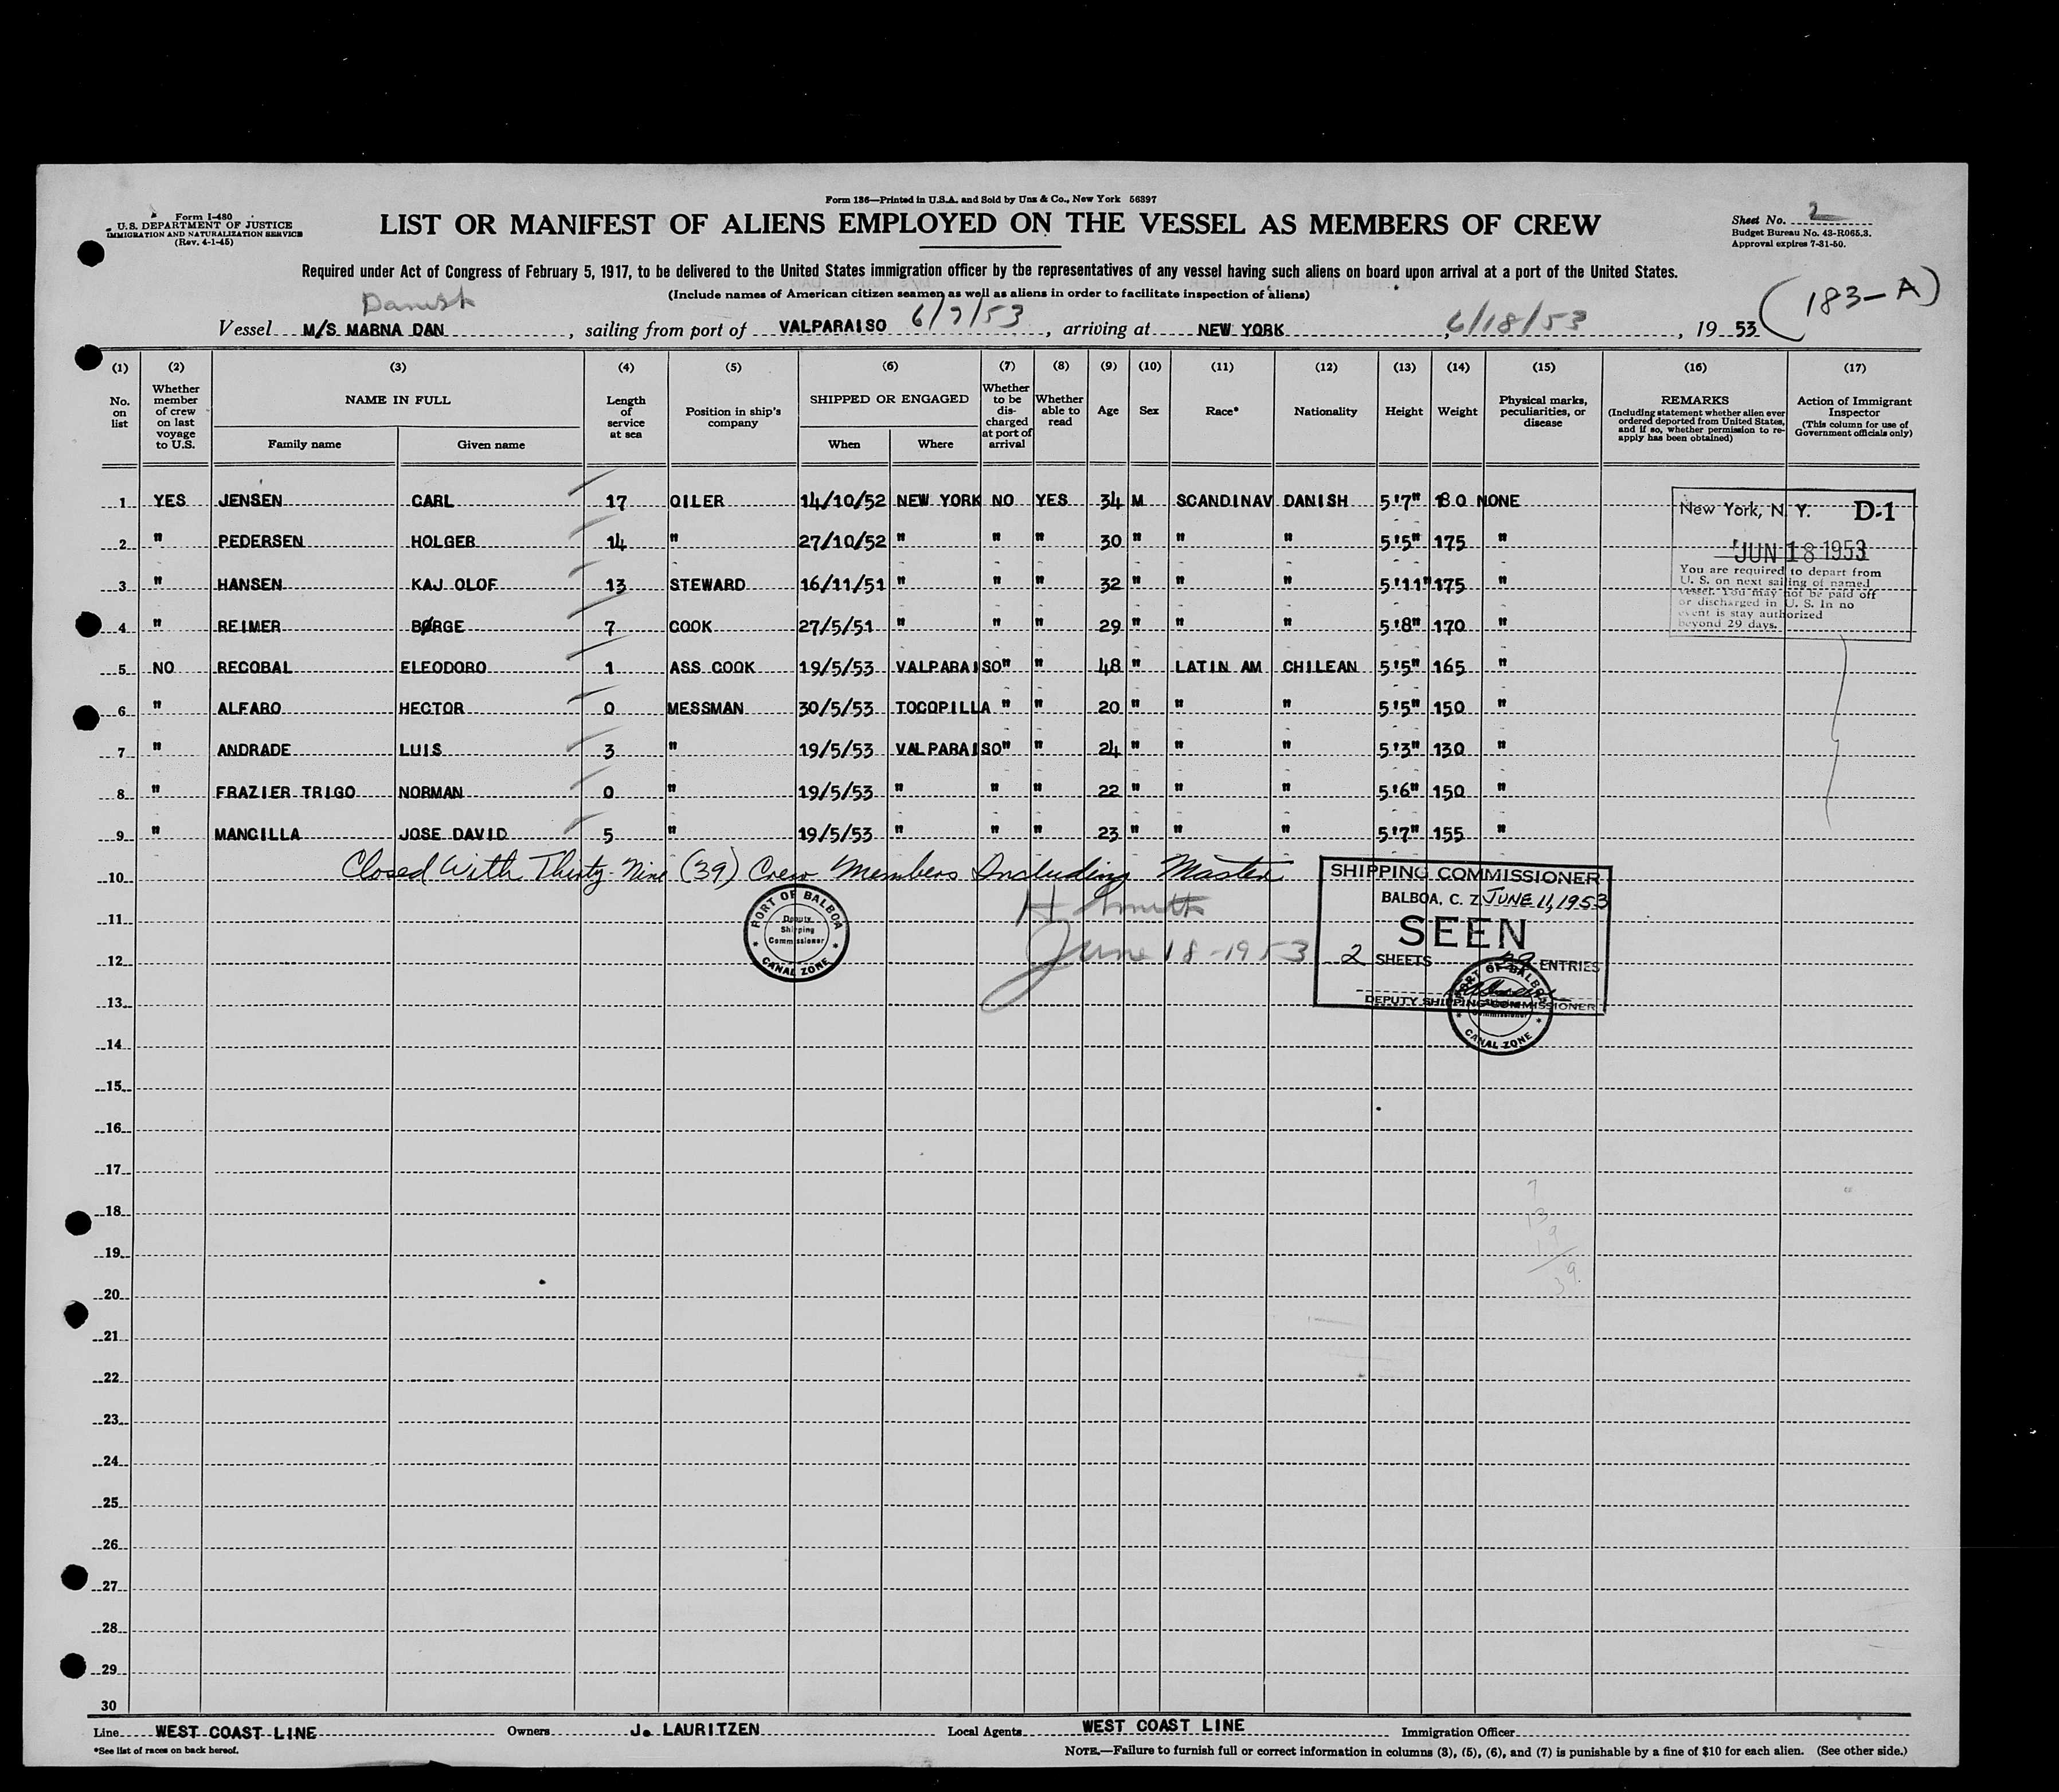 Form 136—Printed in U.S.A. and Sold by Unz & Co., New York 56397
Form I-480
U.S. DEPARTMENT OF JUSTICE
IMMIGRATION AND NATURALIZATION SERVICE
(Rev. 4-1-45)
LIST OR MANIFEST OF ALIENS EMPLOYED ON THE VESSEL AS MEMBERS OF CREW
Sheet No. 2
Budget Bureau No. 43-R065.3.
Approval expires 7-31-50.
Required under Act of Congress of February 5, 1917, to be delivered to the United States immigration officer by the representatives of any vessel having such aliens on board upon arrival at a port of the United States.
(Include names of American citizen seamen as well as aliens in order to facilitate inspection of aliens)
Danish
(183-A)
Vessel M/S MARNA DAN, sailing from port of VALPARAISO 6/7/53, arriving at NEW YORK, 6/18/53, 19 53
(1) (2) (3) (4) (5) (6) (7) (8) (9) (10) (11) (12) (13) (14) (15) (16) (17)
No. on list
Whether member of crew on last voyage to U.S.
NAME IN FULL
Family name Given name
Length of service at sea
Position in ship's company
SHIPPED OR ENGAGED
When Where
Whether to be discharged at port of arrival
Whether able to read
Age
Sex
Race*
Nationality
Height
Weight
Physical marks, peculiarities, or disease
REMARKS
(Including statement whether alien ever ordered deported from United States, and if so, whether permission to re-apply has been obtained)
Action of Immigrant Inspector
(This column for use of Government officials only)
1 YES JENSEN CARL 17 OILER 14/10/52 NEW YORK NO YES 34 M SCANDINAV DANISH 5'7" 180 NONE
2 " PEDERSEN HOLGER 14 " 27/10/52 " " " 30 " " " 5'5" 175 "
3 " HANSEN KAJ OLOF 13 STEWARD 16/11/51 " " " 32 " " " 5'11" 175 "
4 " REIMER BØRGE 7 COOK 27/5/51 " " " 29 " " " 5'8" 170 "
5 NO RECOBAL ELEODORO 1 ASS COOK 19/5/53 VALPARAISO " " 48 " LATIN AM CHILEAN 5'5" 165 "
6 " ALFARO HECTOR 0 MESSMAN 30/5/53 TOCOPILLA " " 20 " " " 5'5" 150 "
7 " ANDRADE LUIS 3 " 19/5/53 VALPARAISO " " 24 " " " 5'3" 130 "
8 " FRAZIER TRIGO NORMAN 0 " 19/5/53 " " " 22 " " " 5'6" 150 "
9 " MANCILLA JOSE DAVID 5 " 19/5/53 " " " 23 " " " 5'7" 155 "
New York, N. Y. D-1
JUN 18 1953
You are required to depart from
U. S. on next sailing of named
vessel. You may not be paid off
or discharged in U. S. In no
event is stay authorized
beyond 29 days.
10 Closed With Thirty-Nine (39) Crew Members Including Master
H Smith
June 18-1953
PORT OF BALBOA
Deputy
Shipping
Commissioner
CANAL ZONE
SHIPPING COMMISSIONER
BALBOA, C. Z. JUNE 11, 1953
SEEN
2 SHEETS 39 ENTRIES
DEPUTY SHIPPING COMMISSIONER
PORT OF BALBOA
CANAL ZONE
11
12
13
14
15
16
17
18
19
20
21
22
23
24
25
26
27
28
29
30
7
13
19
39
Line WEST COAST LINE Owners J. LAURITZEN Local Agents WEST COAST LINE Immigration Officer
*See list of races on back hereof.
NOTE.—Failure to furnish full or correct information in columns (3), (5), (6), and (7) is punishable by a fine of $10 for each alien. (See other side.)